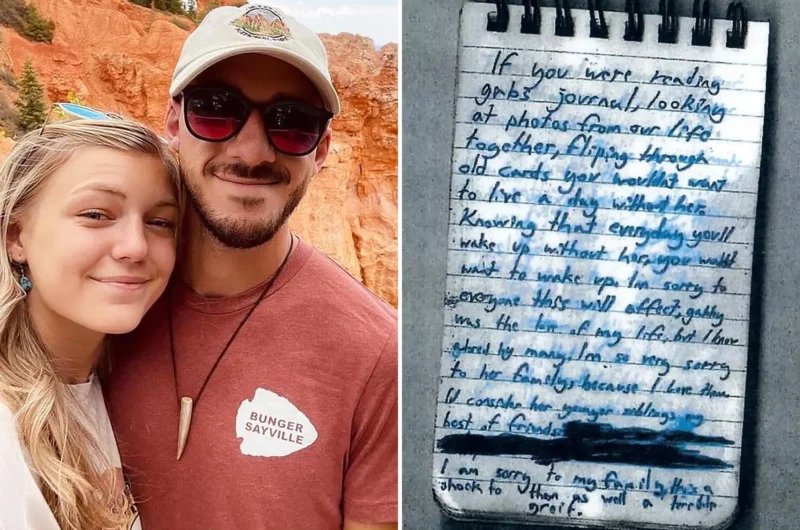 BUNGER
SAYVILLE
If you were reading
gabs journal, looking
at photos from our life
together, fliping through
old cards you wouldnt want
to live a day without her.
Knowing that everyday you'll
wake up without her, you wouldnt
want to wake up. Im sorry to
everyone this will affect, gabby
was the love of my life, but I know
adored by many. Im so very sorry
to her familys because I love them
I'd consider her younger siblings my
best of friends.
I am sorry to my family, this is a
shock to them as well a terrible
greif.